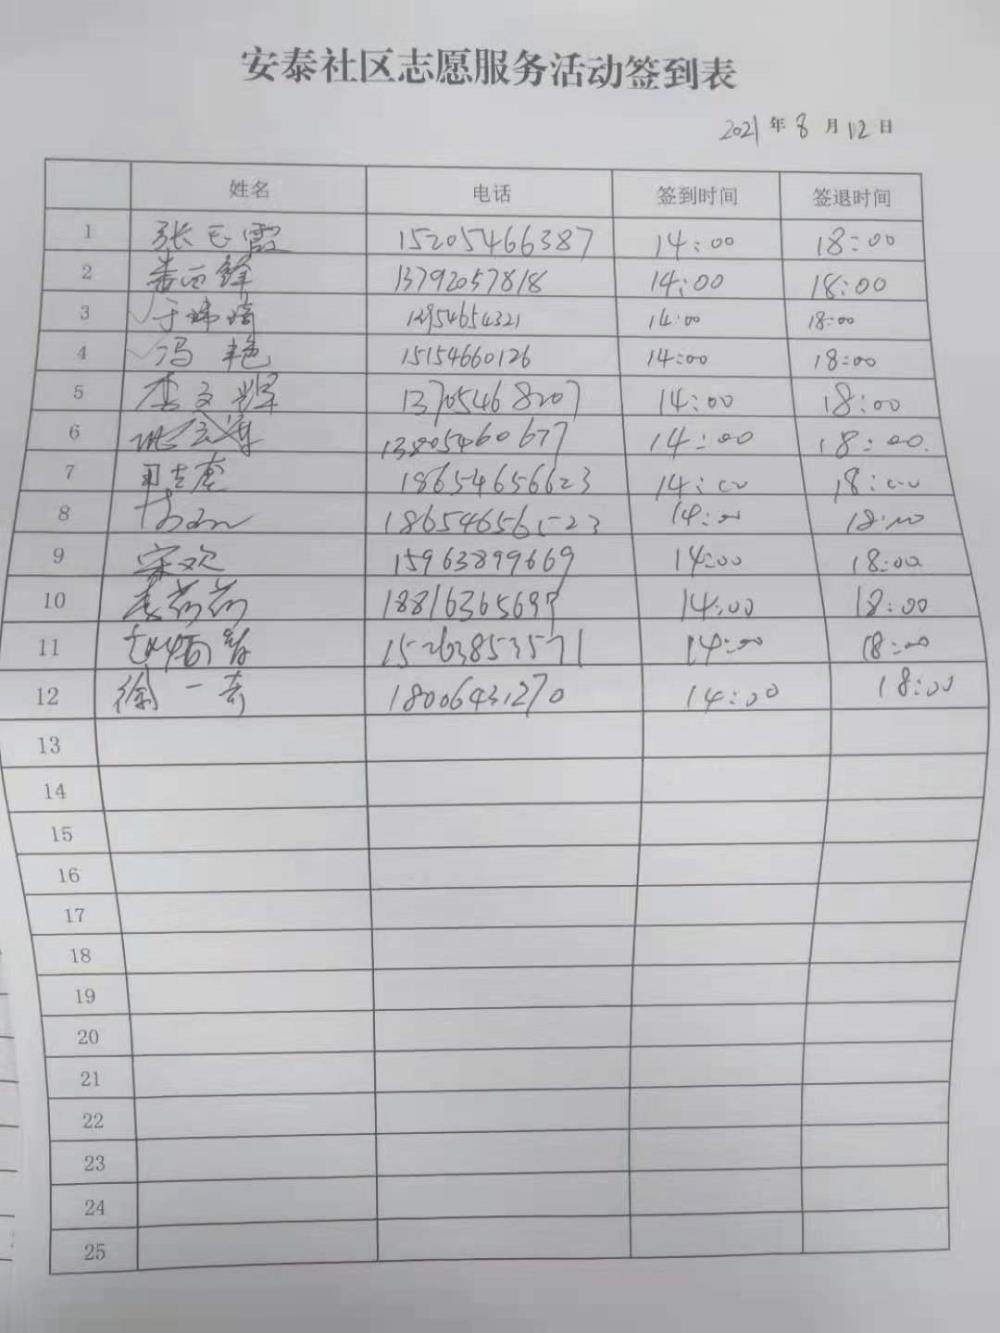 安泰社区志愿服务活动签到表
2021年8月12日
姓名 电话 签到时间 签退时间
1 张玉霞 15205466387 14:00 18:00
2 13792057818 14:00 18:00
3 于 14:00 18:00
4 冯艳 15154660126 14:00 18:00
5 李文辉 13705468207 14:00 18:00
6 13805460677 14:00 18:00.
7 18654656623 14:00 18:00
8 14:00 18:00
9 宋欢 15963899669 14:00 18:00
10 14:00 18:00
11 15263853571 14:00 18:00
12 徐一 18006431270 14:00 18:00
13
14
15
16
17
18
19
20
21
22
23
24
25